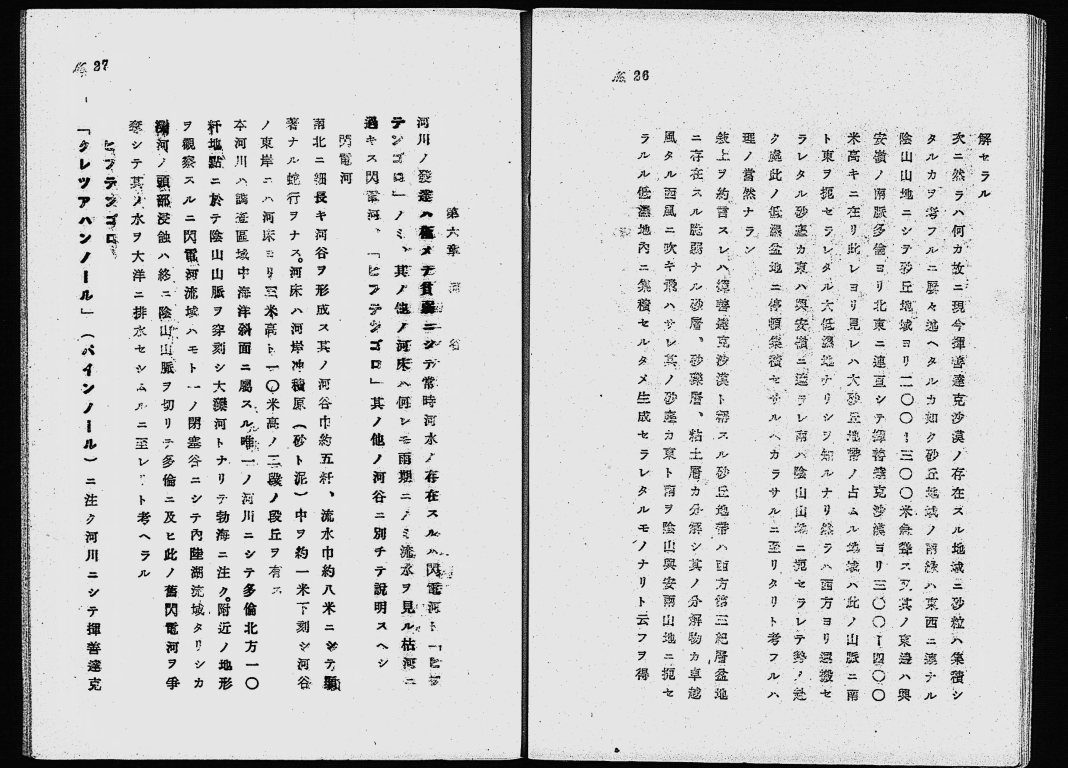 26
解セラル
次ニ然ラハ何カ故ニ現今揮善達克沙漠ノ存在スル地域ニ砂粒ハ集積シ
タルカヲ考フルニ屢々述ヘタルカ如ク砂丘地域ノ南緣ハ東西ニ連ナル
陰山山地ニシテ砂丘地域ヨリ二〇〇-三〇〇米高聳ス又其ノ東邊ハ興
安嶺ノ南脈多倫ヨリ北東ニ連亘シテ揮善達克沙漠ヨリ三〇〇-四〇〇
米高キニ在リ此レヨリ見レハ大砂丘地帶ノ占ムル地域ハ此ノ山脈ニ南
ト東ヲ扼セラレタル大低濕地ナリシヲ知ルナリ然ラハ西方ヨリ運搬セ
ラレタル砂塵カ東ハ興安嶺ニ遮ラレ南ハ陰山山地ニ扼セラレテ勢ノ赴
ク處此ノ低濕盆地ニ停頓集積セサルヘカラサルニ至リタリト考フルハ
理ノ當然ナラン
敍上ヲ約言スレハ揮善達克沙漠ト稱スル砂丘地帶ハ西方第三紀層盆地
ニ存在スル脆弱ナル砂層、砂礫層、粘土層カ分解シ其ノ分解物カ卓越
風タル西風ニ吹キ飛ハサレ其ノ砂塵カ東ト南ヲ陰山興安兩山地ニ扼セ
ラルル低濕地內ニ集積セルタメ生成セラレタルモノナリト云フヲ得
27
第六章 河谷
河川ノ發達ハ極メテ貧弱ニシテ常時河水ノ存在スルハ閃電河ト「ヒラ
テンゴロ」ノミ、其ノ他ノ河床ハ何レモ雨期ニノミ流水ヲ見ル枯河ニ
過キス閃電河、「ヒラテンゴロ」其ノ他ノ河谷ニ別チテ說明スヘシ
閃電河
南北ニ細長キ河谷ヲ形成ス其ノ河谷巾約五粁、流水巾約八米ニシテ顯
著ナル蛇行ヲナス。河床ハ河岸冲積原(砂ト泥)中ヲ約一米下刻シ河谷
ノ東岸ニハ河床ヨリ三米高ト一〇米高ノ二段ノ段丘ヲ有ス
本河川ハ調査區域中海洋斜面ニ屬スル唯一ノ河川ニシテ多倫北方一〇
粁地點ニ於テ陰山山脈ヲ穿刻シ大灤河トナリテ勃海ニ注ク。附近ノ地形
ヲ觀察スルニ閃電河流域ハモト一ノ閉塞谷ニシテ內陸湖流域タリシカ
灤河ノ頭部浸蝕ハ終ニ陰山山脈ヲ切リテ多倫ニ及ヒ此ノ舊閃電河ヲ爭
奪シテ其ノ水ヲ大洋ニ排水セシムルニ至レリト考ヘラル
ヒラテンゴロ
「クレツアハンノール」(バインノール)ニ注ク河川ニシテ揮善達克